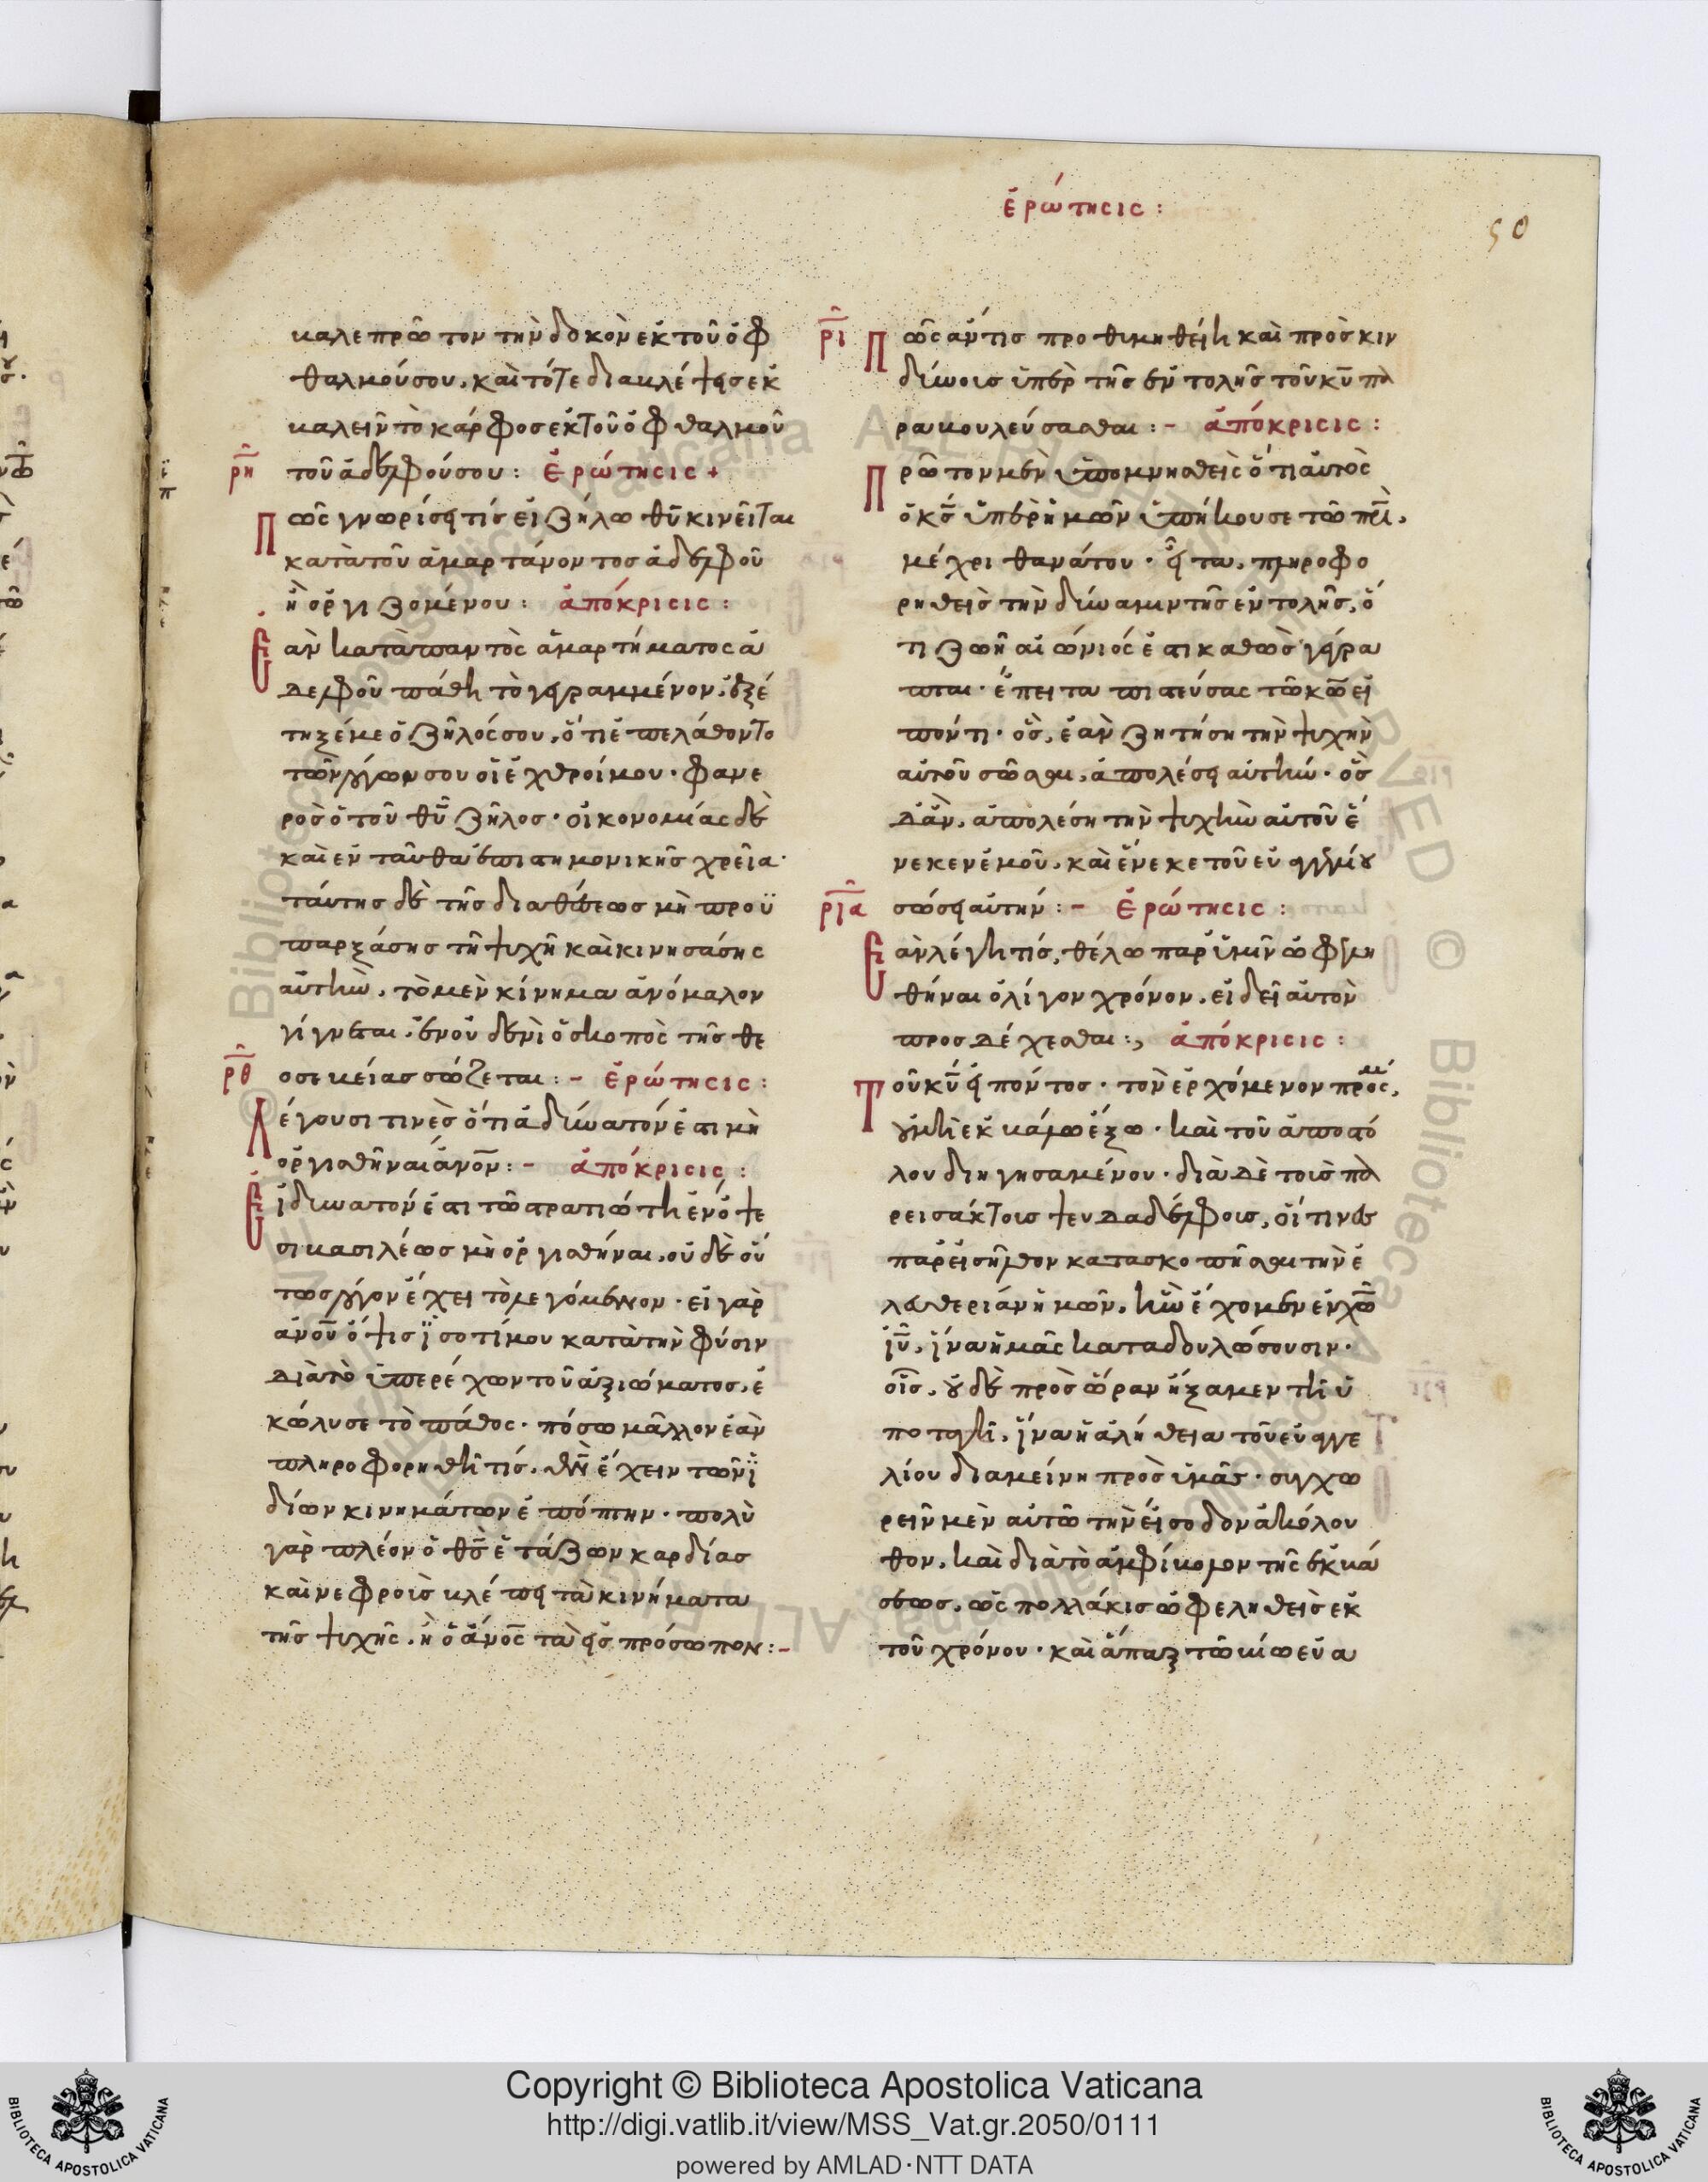 ἐρώτησις :
50
βαλε πρῶτον τὴν δοκὸν ἐκ τοῦ ὀφ
θαλμοῦ σου, καὶ τότε διαβλέψεις ἐκ
βαλεῖν τὸ κάρφος ἐκ τοῦ ὀφθαλμοῦ
ρη τοῦ ἀδελφοῦ σου : ἐρώτησις +
Πῶς γνωρίσει τίς εἰ ζήλω θῦ κινεῖται
κατὰ τοῦ ἁμαρτάνοντος ἀδελφοῦ
ἢ ὀργιζομένου : ἀπόκρισις :
Ἐὰν κατὰ παντὸς ἁμαρτήματος ἀ
δελφοῦ πάθη τὸ γεγραμμένον, ἐξέ
τηξέ με ὁ ζῆλός σου, ὅτι ἐπελάθοντο
τῶν λόγων σου οἱ ἐχθροί μου · φανε
ρὸς ὁ τοῦ θῦ ζῆλος · οἰκονομίας δὲ
καὶ ἐνταῦθα ἐπιστημονικῆς χρεία ·
ταύτης δὲ τῆς διαθέσεως μὴ προϋ
παρξάσης τῆ ψυχῆ καὶ κινησάσης
αὐτὴν, τὸ μὲν κίνημα ἀνόμαλον
γίγνεται, ἐν οὐδενὶ ὁ σκοπὸς τῆς θε
ρθ οσεβείας σώζεται : - ἐρώτησις :
Λέγουσι τινὲς ὅτι ἀδύνατόν ἐστι μὴ
ὀργισθῆναι ἄνον : - ἀπόκρισις :
Εἰ δυνατόν ἐστι τῶ στρατιώτη ἐν ὄψε
σι βασιλέως μὴ ὀργισθῆναι, οὐδὲ οὕ
τως λόγον ἔχει τὸ λεγόμενον · εἰ γὰρ
ἀνου ὄψις ἰσοτίμου κατὰ τὴν φύσιν
διὰ τὸ ὑπερέχων τοῦ ἀξιώματος, ἐ
κώλυσε τὸ πάθος · πόσω μᾶλλον ἐὰν
πληροφορηθῆ τίς, θν ἔχειν τῶν ἰ
δίων κινημάτων ἐπόπτην · πολὺ
γὰρ πλέον ὁ θς ἐτάζων καρδίας
καὶ νεφροις βλέπει τὰ κινήματα
τῆς ψυχῆς, ἢ ὁ ἄνος τὰ εἰς πρόσωπον : -
ρι Πῶς ἄν τις προθυμηθείη καὶ πρὸς κιν
δύνοις ὑπὲρ τῆς ἐντολῆς τοῦ κυ πα
ραβουλεύσασθαι : - ἀπόκρισις :
Πρῶτον μὲν ὑπομνησθεὶς ὅτι αὐτὸς
ὁ κς ὑπὲρ ἡμῶν ὑπήκουσε τῶ πρι,
μέχρι θανάτου · εἶτα, πληροφο
ρηθεὶς τὴν δύναμιν τῆς ἐντολῆς, ὅ
τι ζωὴ αἰώνιός ἐστι καθὼς γέγρα
πται · ἔπειτα πιστεύσας τῶ κω εἰ
πόντι · ὃς, ἐὰν ζητήση τὴν ψυχὴν
αὐτοῦ σῶσαι, ἀπολέσει αὐτὴν · ὃς
δ' ἂν, ἀπολέση τὴν ψυχὴν αὐτοῦ ἕ
νεκεν ἐμοῦ, καὶ ἕνεκε τοῦ εὐαγγελίου
ρια σώσει αὐτήν : - ἐρώτησις :
Ἐὰν λέγη τίς, θέλω παρ' ὑμῖν ὠφελη
θῆναι ὀλίγον χρόνον, εἰ δεῖ αὐτὸν
προσδέχεσθαι :, ἀπόκρισις :
Τοῦ κυ εἰπόντος · τὸν ἐρχόμενον πρός με,
οὐ μὴ ἐκβάλω ἔξω · καὶ τοῦ ἀποστό
λου διηγησαμένου · διὰ δὲ τοὶς πα
ρεισάκτοις ψευδαδέλφοις, οἵτινες
παρεισῆλθον κατασκοπῆσαι τὴν ἐ
λευθερίαν ἡμῶν, ἣν ἔχομεν ἐν χω
ιυ, ἵνα ἡμᾶς καταδουλώσουσιν ·
οἷς, οὐδὲ πρὸς ὥραν ἥξαμεν τῆ ὑ
ποταγῆ, ἵνα ἡ ἀλήθεια τοῦ εὐαγγε
λίου διαμείνη πρὸς ὑμᾶς · συγχω
ρεῖν μὲν αὐτῶ τὴν εἴσοδον ἀκόλου
θον, καὶ διὰ τὸ ἀμφίβολον τῆς ἐκβά
σεως, ὡς πολλάκις ὠφεληθεὶς ἐκ
τοῦ χρόνου · καὶ ἅπαξ τῶ βίω εὐα
Copyright © Biblioteca Apostolica Vaticana
http://digi.vatlib.it/view/MSS_Vat.gr.2050/0111
powered by AMLAD·NTT DATA
BIBLIOTECA APOSTOLICA VATICANA
BIBLIOTECA APOSTOLICA VATICANA